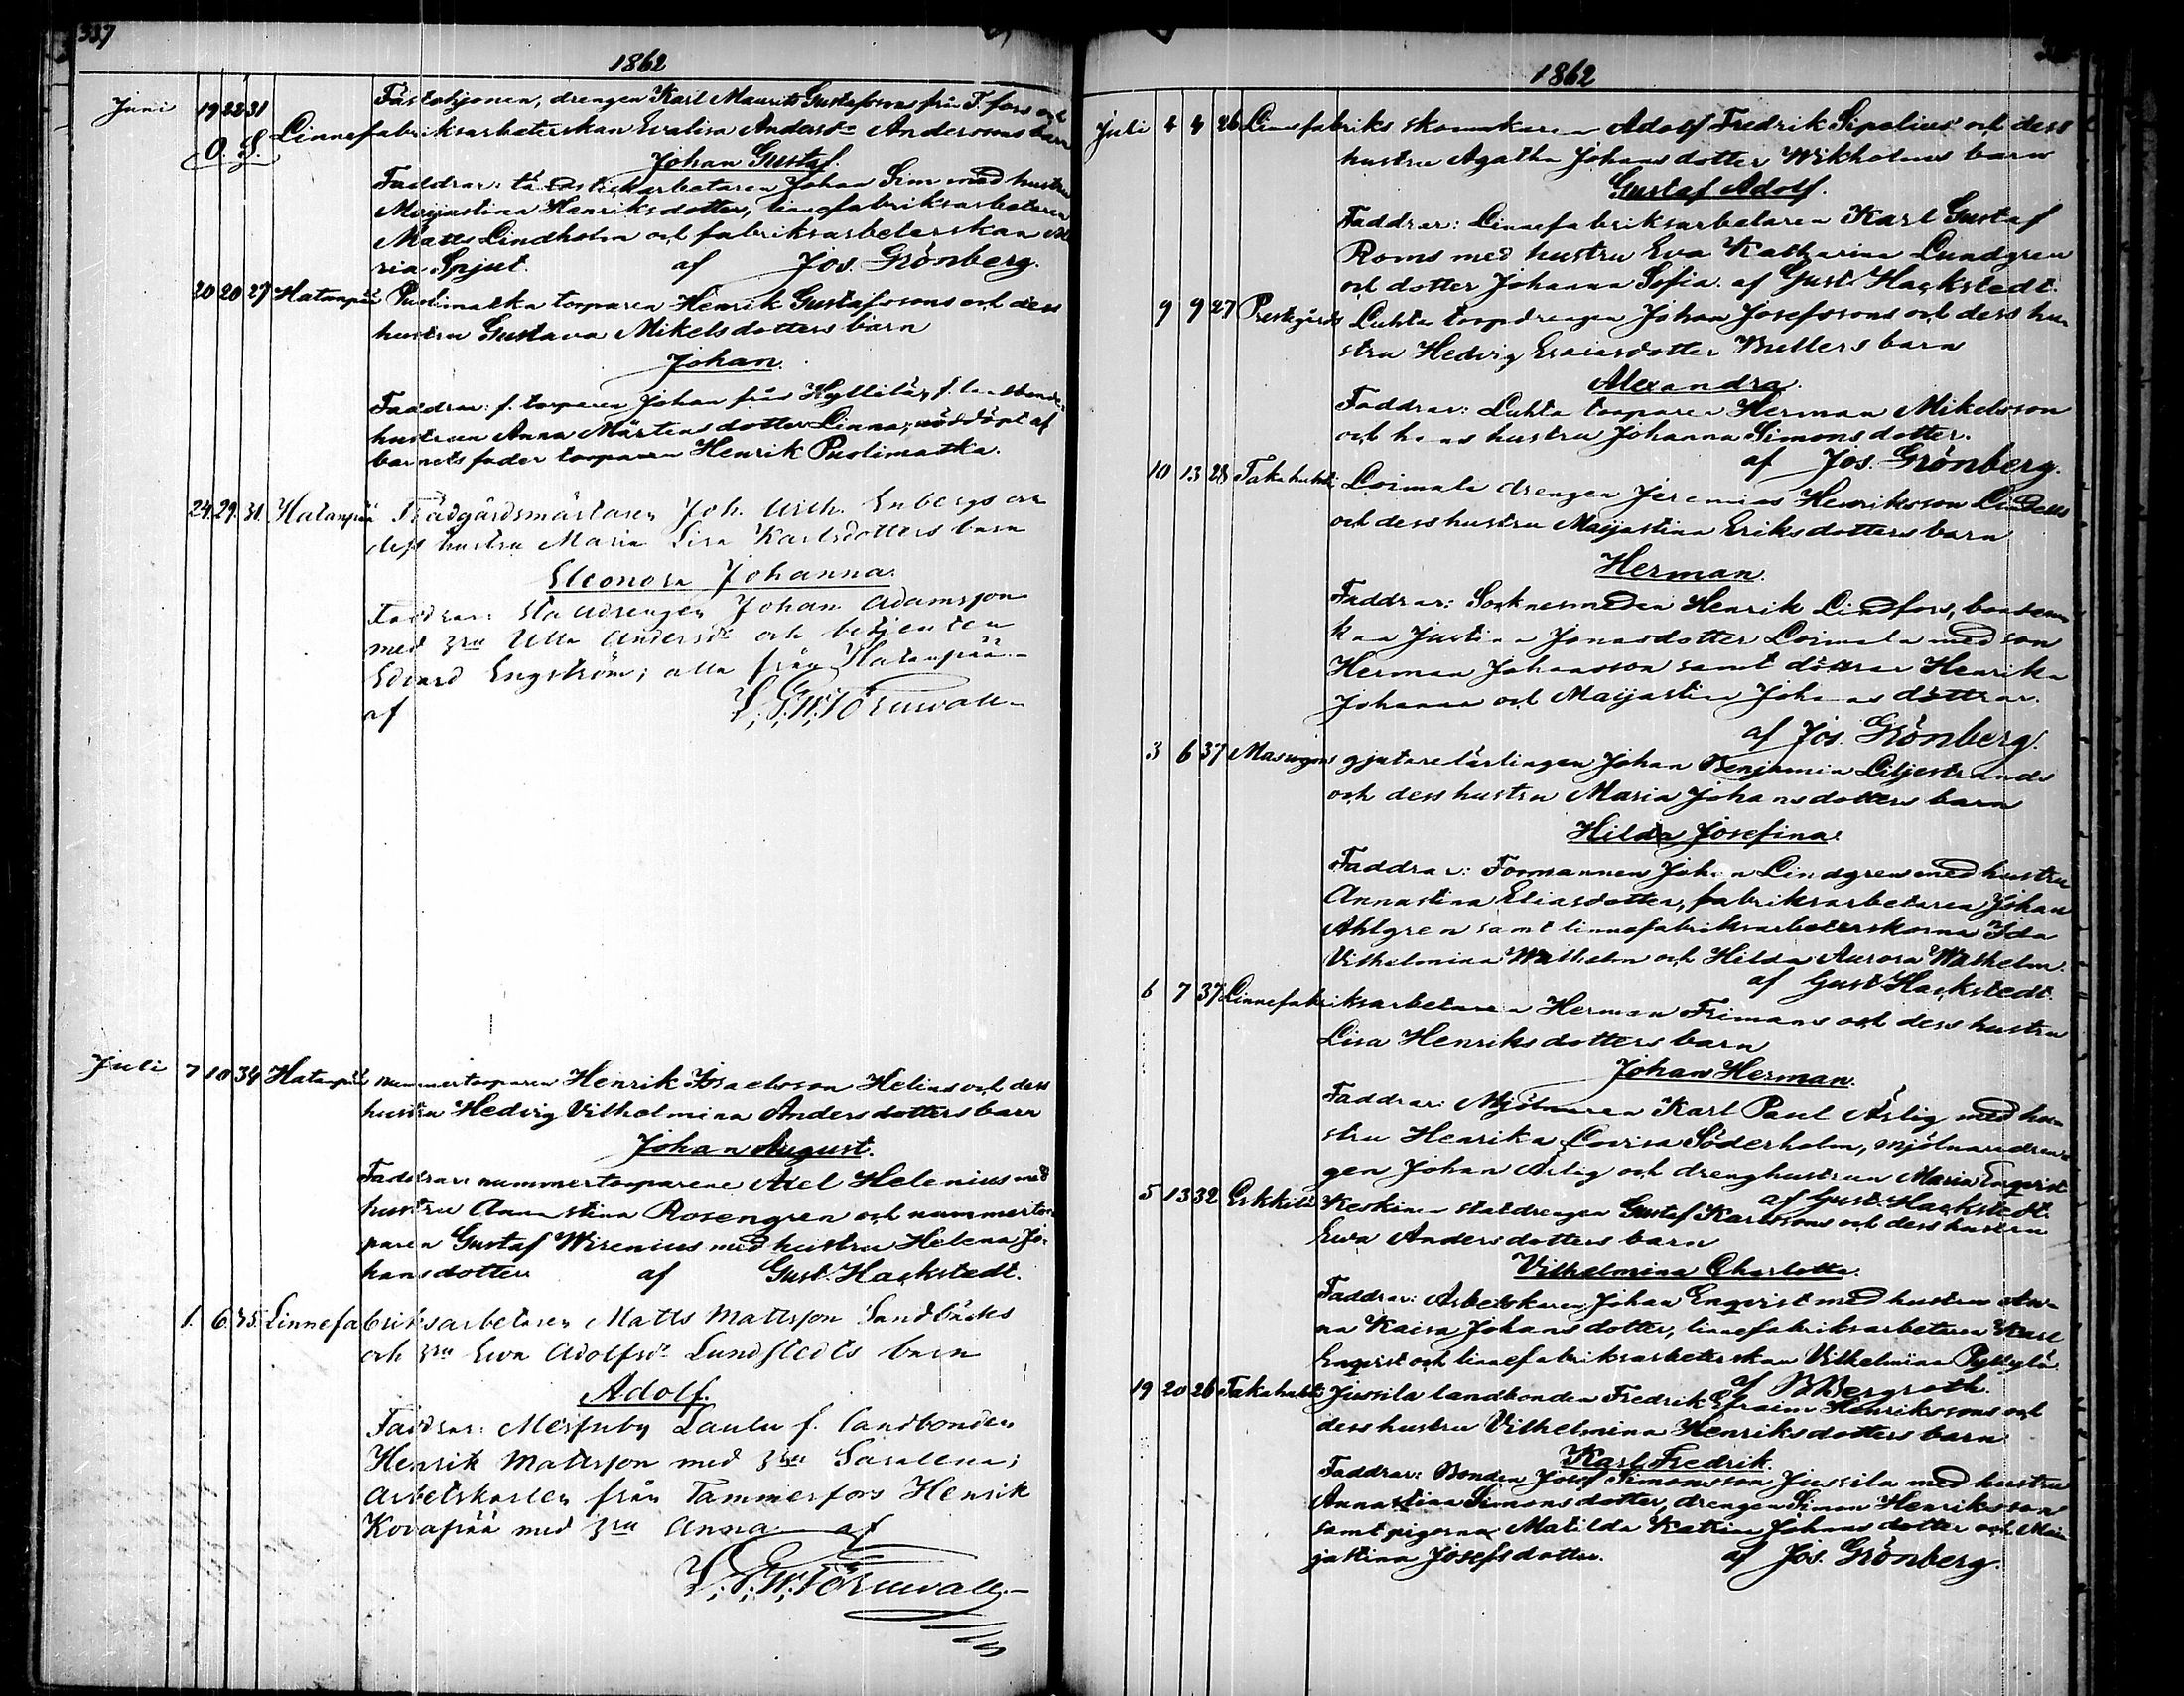 337
1862
Juni 19 22 31 Fästehjonen, drengen Karl Maurits Gustafssons från T.fors och
O. S. Linnefabriksarbeterskan Evalisa Andersdr Anderssons barn
Johan Gustaf.
Faddrar: tändsticksarbetaren Johan Sim med hustru
Maijastina Henriksdotter, linnefabriksarbetaren
Matts Lindholm och fabriksarbeterskan Ma
ria Spjut. af Jos. Grönberg.
20 20 27 Hatanpää Puolimatka torparen Henrik Gustafssons och dess
hustru Gustava Mikelsdotters barn
Johan.
Faddrar: f. torparen Johan från Hyllilä, f. landbonde-
hustrun Anna Mårtensdotter Linna, nöddöpt af
barnets fader torparen Henrik Puolimatka.
24. 29. 31. Hatanpää Trädgårdsmästaren Joh. Wilh. Enbergs och
dess hustru Maria Lisa Karlsdotters barn
Eleonora Johanna.
Faddrar: Statdrengen Johan Adamsson
med hru Ulla Andersdr och betjenten
Edvard Engström; alla från Hatanpää.-
af L. G. W. Törnwall-
Juli 7 10 34 Hatanpää nummertorparen Henrik Isaelsson Helins och dess
hustru Hedvig Vilhelmina Andersdotters barn
Johan August.
Faddrar: nummertorparene Axel Helenius med
hustru Annastina Rosengren och nummertor-
paren Gustaf Wirenius med hustru Helena Jo-
hansdotter af Gust. Hackstedt.
1. 6. 35. Linnefabriksarbetaren Matts Mattsson Sandbäcks
och hru Ewa Adolfsdr Lundstedts barn
Adolf.
Faddrar: Messuby Laulu f. landbonden
Henrik Mattsson med hru Saralena;
Arbetskarlen från Tammerfors Henrik
Kovapää med hru Anna af
L. G. W. Törnwall.-
1862
Juli 4 4 26 Linnefabriks skomakaren Adolf Fredrik Sipolius' och dess
hustru Agatha Johansdotter Wikholms barn
Gustaf Adolf.
Faddrar: Linnefabriksarbetaren Karl Gustaf
Roms med hustru Eva Katharina Lundgren
och dotter Johanna Sofia. af Gust. Hackstedt.
9 9 27 Prestgårds Luhta torpdrengen Johan Josefssons och dess hu-
stru Hedvig Esaiasdotter Bullers barn
Alexandra.
Faddrar: Luhta torparen Herman Mikelsson
och hans hustru Johanna Simonsdotter.
af Jos. Grönberg.
10 13 28 Takahuhti Loimala drengen Jeremias Henriksson Lindells
och dess hustru Maijastina Eriksdotters barn
Herman.
Faddrar: Socknesmeden Henrik Lindfors, bondeen-
kan Justina Jonasdotter Loimala med son
Herman Johansson samt döttrar Henrika
Johanna och Maijastina Johansdöttrar.
af Jos. Grönberg.
3 6 37 Masugns gjutarelärlingen Johan Benjamin Liljestrands
och dess hustru Maria Johansdotters barn
Hilda Josefina.
Faddrar: Formannen Johan Lindgren med hustru
Annastina Eliasdotter, fabriksarbetaren Johan
Ahlgren samt linnefabriksarbeterskorna Ida
Vilhelmina Walhelm och Hilda Aurora Walhelm.
af Gust. Hackstedt.
6 7 37 Linnefabriksarbetaren Herman Frimans och dess hustru
Lisa Henriksdotters barn
Johan Herman.
Faddrar: Mjölnaren Karl Paul Ärlig med hu-
stru Henrika Lovisa Söderholm, mjölnaredren-
gen Johan Ärlig och drenghustrun Maria Enqvist
af Gust. Hackstedt.
5 13 32 Erkkilä Keskinen statdrengen Gustaf Karlssons och dess hustru
Ewa Andersdotters barn
Vilhelmina Charlotta.
Faddrar: Arbetskarlen Johan Enqvist med hustru An-
na Kaisa Johansdotter, linnefabriksarbetaren Karl
Enqvist och linnefabriksarbeterskan Vilhelmina Pyttylä.
af B. Bergroth.
19 20 26 Takahuhti Jussila landbonden Fredrik Efraim Henrikssons och
dess hustru Vilhelmina Henriksdotters barn
Karl Fredrik.
Faddrar: Bonden Josef Simonsson Jussila med hustru
Annastina Simonsdotter, drengen Simon Henriksson
samt pigorna Matilda Katrina Johansdotter och Mai-
jastina Josefsdotter. af Jos. Grönberg.